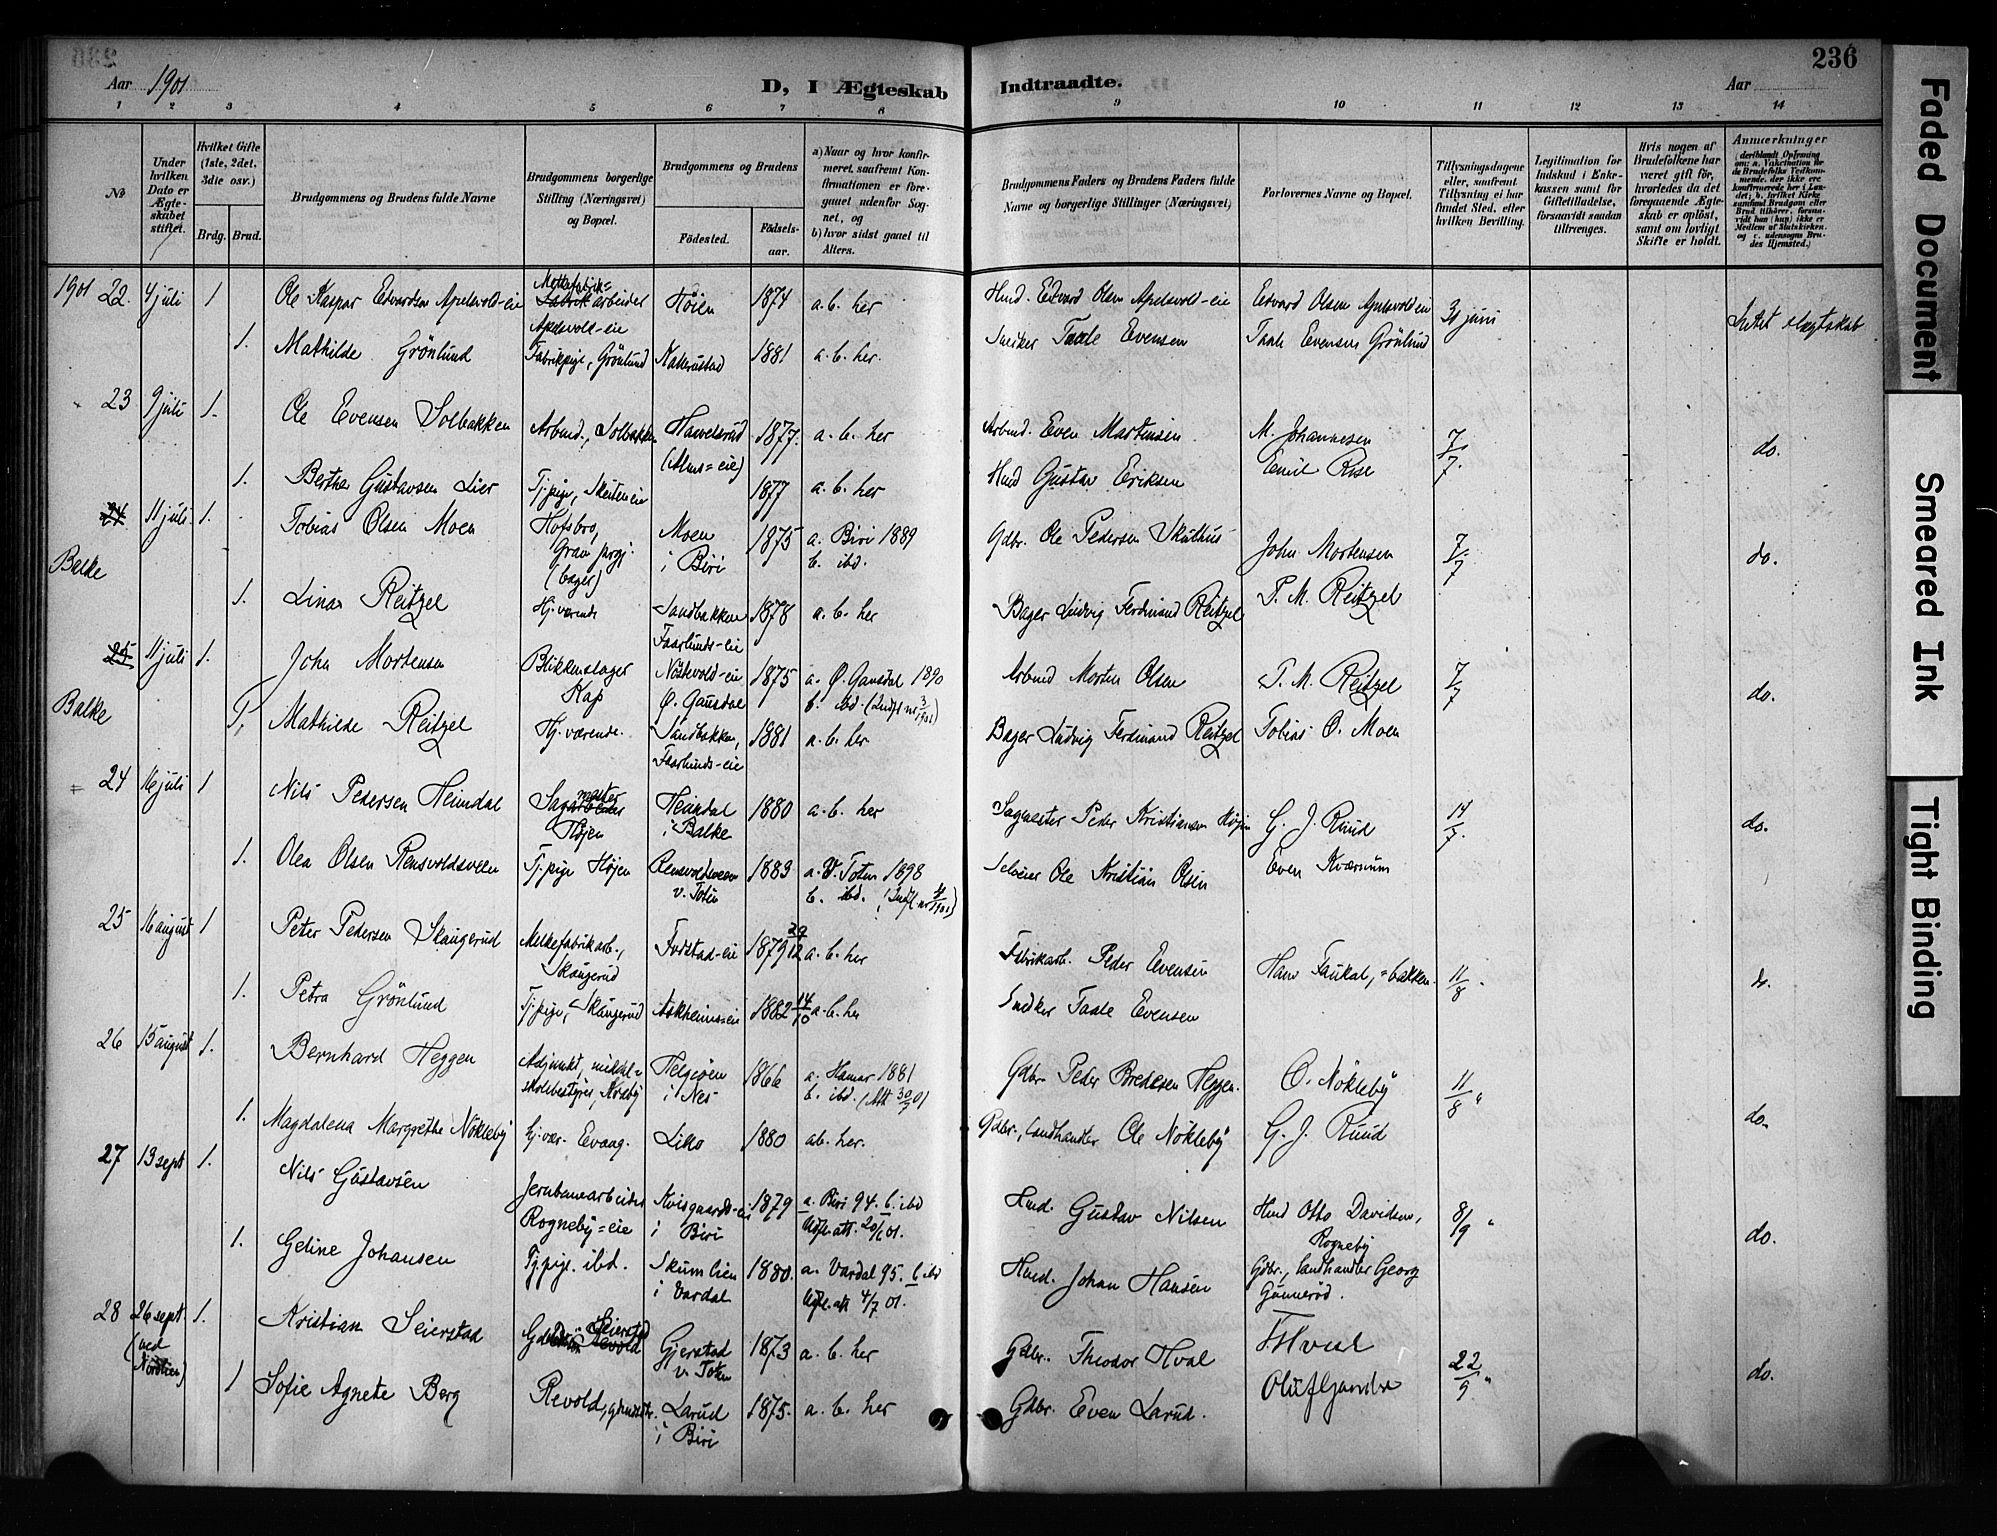 236
Aar 1901
D, I Ægteskab Indtraadte.
Aar
1 2 3 4 5 6 7 8 9 10 11 12 13 14
No
Under hvilken Dato er Ægteskabet stiftet.
Hvilket Gifte (1ste, 2det, 3die osv.)
Brdg. Brud.
Brudgommens og Brudens fulde Navne
Brudgommens borgerlige Stilling (Næringsvei) og Bopæl.
Brudgommens og Brudens
Fødested.
Fødselsaar.
a) Naar og hvor konfirmeret, saafremt Konfirmationen er foregaaet udenfor Sognet, og
b) hvor sidst gaaet til Alters.
Brudgommens Faders og Brudens Faders fulde Navne og borgerlige Stillinger (Næringsvei)
Forlovernes Navne og Bopæl.
Tillysningsdagene eller, saafremt Tillysning ei har fundet Sted, efter hvilken Bevilling.
Legitimation for Indskud i Enkekassen samt for Giftetilladelse, forsaavidt saadan tiltrænges.
Hvis nogen af Brudefolkene har været gift før, hvorledes da det foregaaende Ægteskab er opløst, samt om lovligt Skifte er holdt.
Anmærkninger (deriblandt Opførsing om: a. Vakcination for de Brudefolks Vedkommende, der ikke ere konfirmerede her i Landet; b. hvilket Kirkesamfund Brudgom eller Brud tilhører, forsaavidt han (hun) ikke er Medlem af Statskirken, og c. udensogns Brudes Hjemsted.)
1901 22. 4 juli 1 Ole Kaspar Edvardsen Apelsvold-eie Melkefabrik= arbeider Apelsvold-eie Höien 1874 a. b. her Husd. Edvard Olsen Apelsvold-eie Edvard Olsen Apelsvold-eie 30 juni Intet slægtskab
1. Mathilde Grönlund Fabrikpige, Grönlund Nakerustad 1881 a. b. her. Snedker Taale Evensen Taale Evensen Grönlund
23 9 juli 1. Ole Evensen Solbakken Arbmd., Solbakken Haavelsrud (Alms=eie) 1877. a. b. her Arbmd. Even Martinsen M. Johannesen 7/7. do.
1. Berthe Gustavsen Lier Tj.pige, Skuteneie 1877 a. b. her Husd Gustav Eriksen Emil Rise
24 11 juli 1. Tobias Olsen Moen Hofsbro, Gran (bager) Moen i Biri 1875 a. Biri 1889 b. ibd. Gdbr. Ole Pedersen Skuthus John Mortensen 7/7 do.
Balke 1. Lina Reitzel Hj.værende Sandbakken Faarlunds-eie 1878 a. b. her Bager Ludvig Ferdinand Reitzel T. M. Reitzel
25 11 juli 1. John Mortensen Blikkenslager Kap Nöstvold-eie Ö. Gausdal 1875 a. Ö. Gausdal 1890 b. ibd. (Indfl nr 3/1901) Arbmd Morten Olsen T. M. Reitzel 7/7 do.
Balke 1, Mathilde Reitzel Hj.værende. Sandbakken, Faarlunds-eie 1881 a. b. her Bager Ludvig Ferdinand Reitzel Tobias O. Moen
24 16 juli 1 Nils Pedersen Heimdal Sagmester Höjen Heimdal i Balke 1880 a. b. her Sagmester Peder Kristiansen Höjen G. J. Ruud 14/7. do.
1. Olea Olsen Rensvoldsveen Tj.pige Höjen Rensvoldsveen v. Toten 1883 a. V. Toten 1898 b. ibd. (Indfl. nr 4/1901) Selveier Ole Kristian Olsen Even Kværnum
25 16 august 1 Peter Pedersen Skaugerud Melkefabrikarb., Skaugerud Fodstad-eie 1879 29/12 a. b. her Fabrikarb. Peder Evensen Hans Faukal,=bakken 11/8. do.
1. Petra Grönlund Tj.pige, Skaugerud Askheims=eie 1882 14/10 a. b. her Snedker Taale Evensen
26 15 august 1. Bernhard Heggen Adjunkt, middel= skolebestyrer, Korsby Helgöen i Nes 1866 a. Hamar 1881 b. ibd. (Att 30/7 01) Gdbr. Peder Bredesen Heggen. O. Nökleby 11/8 " do.
1. Magdalena Margrethe Nökleby Hj.vær. Evang. Lillo 1880 a b. her. Gdbr., landhandler Ole Nökleby G. J. Ruud
27 13 sept 1. Nils Gustavsen Jernbanearbeider Rogneby=eie Kvisgaards-eie i Biri 1879 a. Biri 94. b. ibd Udfl. att. 20/6 01. Husd. Gustav Nilsen Husd Otto Davidsen, Rogneby 8/9 " do.
1. Geline Johansen Tj.pige. ibd. Skumlien i Vardal 1880. a. Vardal 95. b ibd Udfl. att 4/7 01. Husd. Johan Hansen Gdbr., landhandler Georg Gunneröd.
28 26 sept. (ved Nordlien) 1. Kristian Seierstad Seierstad Gjerstad v. Toten 1873 a. b. her Gdbr. Theodor Hval T Hval 22/9 " do.
1 Sofie Agnete Berg Revold, Larud i Biri 1875. a. b. her Gdbr. Even Larud.
Faded Document
Smeared Ink
Tight Binding